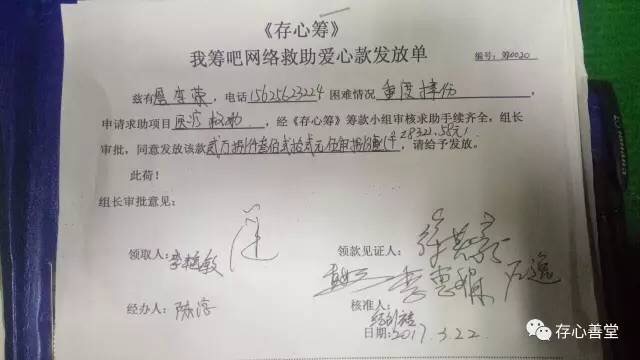 《存心筹》
我筹吧网络救助爱心款发放单
编号:筹0020
兹有 荣,电话15625623224困难情况重度摔伤,
申请求助项目医疗救助,经《存心筹》筹款小组审核求助手续齐全,组长
审批,同意发放该款贰万捌仟叁佰贰拾贰元伍角捌分(¥28322.58元),请给予发放。
此荷!
组长审批意见:
领取人:李 敏
领款见证人:
经办人:陈
核准人:
日期:2017.3.22.
存心善堂